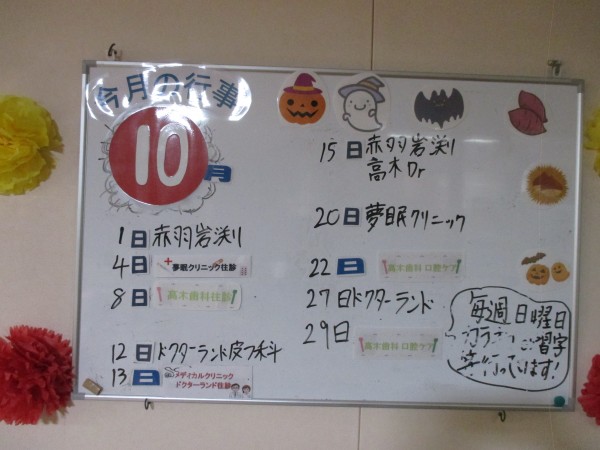 今月の行事
10月
1日 赤羽岩渕
4日 夢眠クリニック往診
8日 高木歯科往診
12日 ドクターランド皮フ科
13日 メディカルクリニック
ドクターランド往診
15日 赤羽岩渕
高木Dr
20日 夢眠クリニック
22日 高木歯科 口腔ケア
27日 ドクターランド
29日 高木歯科 口腔ケア
毎週日曜日
ご習字
行っています!